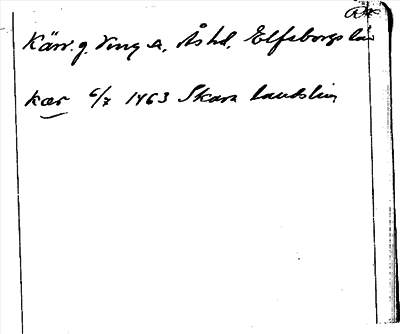 Kärr. g. Ving s., Ås hd, Elfsborgs län
kær 6/7 1463 Skara landsting